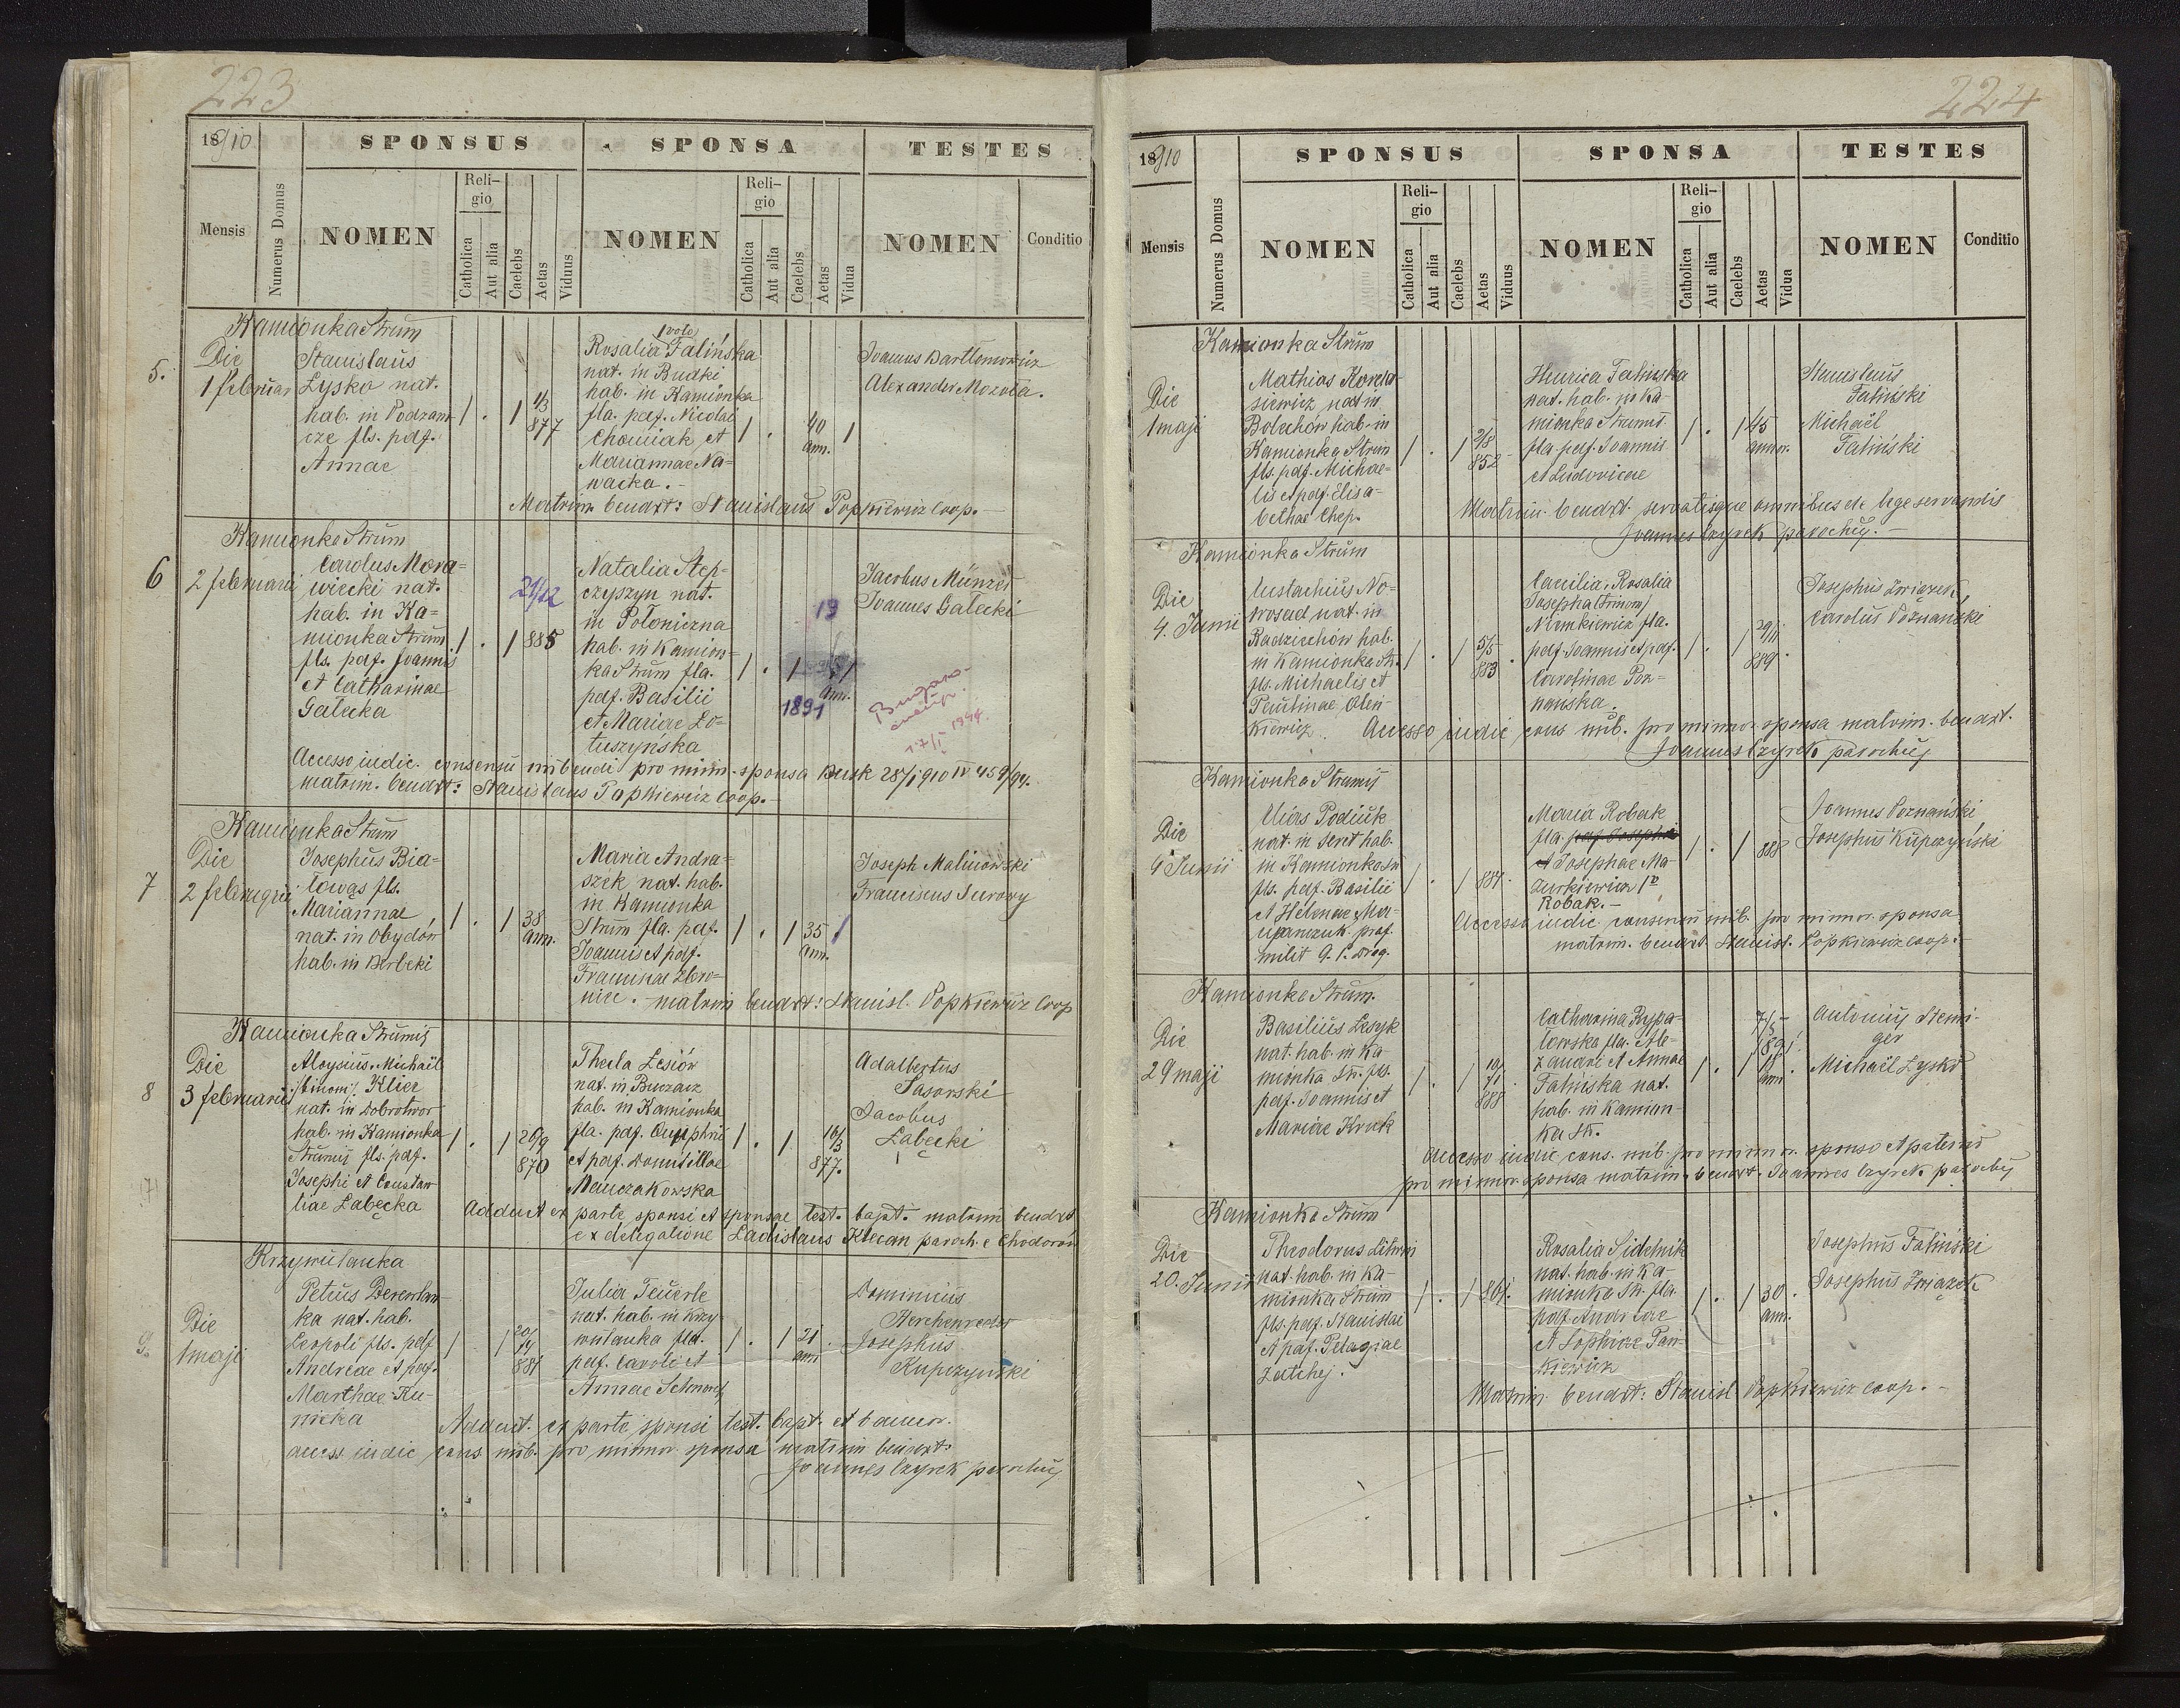 223
1910
SPONSUS
SPONSA
TESTES
Mensis
Numerus Domus
NOMEN
Religio
Catholica
Aut alia
Caelebs
Aetas
Viduus
NOMEN
Religio
Catholica
Aut alia
Caelebs
Aetas
Vidua
NOMEN
Conditio
Kamionka Strum
5.
Die
1 februar
Stanislaus
Łysko nat.
hab. in Podzam-
cze fls. pdf.
Annae
1 . 1 1/3
877
1 voto
Rosalia Falińska
nat. in Budki
hab. in Kamionka
fla. pdf. Nicolai
Chomiak et
Mariannae Na=
wacka.-
1 . 40 1
ann.
Joannes Bartłomowicz
Alexander Mozoła.
Matrim. benedxt: Stanislaus Popkiewicz coop.-
Kamionka Strum
6
2 februarii
Carolus Mora=
wiecki nat.
hab. in Ka-
mionka Strum
fls. pdf. Joannis
et Catharinae
Gałecka
21/12
1 . 1 885
Natalia Step-
czyszyn nat.
in Połoniczna
hab. in Kamion-
ka Strum fla.
pdf. Basilii
et Mariae Lo-
tuszyńska
19
1 . 1
ann.
1891
Jacobus Münzer
Joannes Gałecki
17/I 1944.
Accesso iudic. consensu nubendi pro minor. sponsa Busk 28/1 910 IV 459/94.
matrim. benedxt: Stanislaus Popkiewicz coop.-
Kamionka Strum
7
Die
2 februarii
Josephus Bia-
łowąs fls.
Mariannae
nat. in Obydów
hab. in Berbeki
1 . 1 38
ann.
Maria Andra=
szek nat. hab.
in Kamionka
Strum fla. pdf.
Joannis et pdf.
Franciscae
1 . 1 35
ann.
Joseph Malinowski
Franciscus Surowy
matrim benedxt: Stanisl. Popkiewicz coop
Kamionka Strumis
8
Die
3 februarii
Aloysius, Michaël
/binom/ Klier
nat. in Dobrotwor
hab. in Kamionka
Strumis fls. pdf.
Josephi et Constan-
tiae Łabęcka
1 . 1 26/9
870
Thecla Lesiów
nat. in Buczacz
hab. in Kamionka
fla. pdf. Onuphrii
et pdf. Domitillae
Manczakowska
1 . 1 16/3
877.
Adalbertus
Sasorski
Jacobus
Łabęcki
Adduct ex parte sponsi et sponsae test. bapt. matrim benedxt
ex delegatione Ladislaus Klecan paroch. e Chodorów
Krzywulanka
9.
Die
1 maji
Petrus Derewlan-
ka nat. hab.
Leopoli fls. pdf
Andreae et pdf.
Marthae Ku-
nicka
1 . 1
881
Julia Feuerle
nat. hab. in Krzy-
wulanka fla.
pdf. Caroli et
Annae
1 . 1 21
ann
Dominicus
Herchenreder
Josephus
Kupczyński
Adduct. ex parte sponsi test. bapt. et bannor.
access. iudic cons nub. pro minor. sponsa matrim benedxt.
Joannes Czyrek parochus
224
1910
SPONSUS
SPONSA
TESTES
Mensis
Numerus Domus
NOMEN
Religio
Catholica
Aut alia
Caelebs
Aetas
Viduus
NOMEN
Religio
Catholica
Aut alia
Caelebs
Aetas
Vidua
NOMEN
Conditio
Kamionka Strum
Die
1 maji
Mathias
siewicz nat in
Bolechów hab. in
Kamionka Strum
fls. pdf. Michae-
lis et pdf. Elisa-
bethae Chep.
1 . 1 2/8
852
Henrica Falińska
nat. hab. in Ka-
mionka Strumis
fla. pdf. Joannis
et Ludovicae
1 . 1 45
annor.
Stanislaus
Faliński
Michaël
Faliński
Matrim. benedxt. servatisque omnibus de lege servandis
Joannes Czyrek parochus.-
Kamionka Strum
Die
4. Junii
Eustachius No-
wosad nat. in
Radziechów hab.
in Kamionka Str.
fls. Michaelis et
Paulinae Olein-
kiewicz.
1 . 1 5/5
883
Caecilia, Rosalia
Josepha (trinom)
Nimkiewicz fla.
pdf. Joannis et pdf.
Carolinae Poz-
nańska.
1 . 1 29/11
889
Josephus Związek
Carolus Poznański
Accesso iudic cons nub. pro minor. sponsa matrim. benedxt.
Joannes Czyrek parochus
Kamionka Strumis
Die
4 Junii
Elias Podiuk
nat. in Seret hab.
in Kamionka Str
fls. pdf. Basilii
et Helenae Ma-
prof.
milit 9. r. Drag.
1 . 1 884.
Maria Robak
fla. pdf Josephi
et Josephae Ma-
zurkiewicz 1º
Robak.-
1 . 1 888
Joannes Poznański
Josephus Kupczyński
Accesso iudic. consensu nub. pro minor. sponsa
matrim. benedxt Stanisl. Popkiewicz coop.-
Kamionka Strum.
Die
29 maji
Basilius Lesyk
nat. hab. in Ka-
mionka Str. fls.
pdf. Joannis et
Mariae Kruk
1 . 1
888
Catharina Rypa-
łowska fla. Ale-
xandri et Annae
Falińska nat.
hab. in Kamion-
ka Str.
1 . 1 7/5
891
19
ann.
Antonius Stemi-
ger
Michaël Łysko
Accesso iudic. cons. nub. pro minor. sponso et paterno
pro minor. sponsa matrim. benedxt. Joannes Czyrek parochus
Kamionka Strum
Die
20. Junii
Theodorus Litwin
nat. hab. in Ka-
mionka Strum
fls. pdf. Stanislai
et pdf. Pelagiae
1 . 1 861.
Rosalia Sidelnik
nat. hab. in Ka-
mionka Str. fla.
pdf. Andreae
et Sophiae Pan-
kiewicz
1 . 1 30
ann.
Josephus Faliński
Josephus Związek
Matrim. benedxt: Stanisl Popkiewicz coop.-